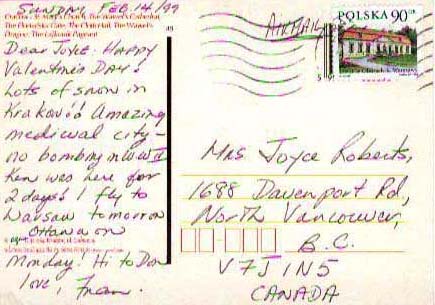 Sunday Feb 14/99
Cracow: St. Mary's Church, The Wawel's Cathedral,
The Florianska Gate, The Cloth Hall, The Wawel's
Dragon, The Lajkonik Pageant
Dear Joyce: Happy
Valentine's DAY!
Lots of snow in
Krakow! Amazing
medieval city-
no bombing in WWII
Ken was here for
2 days! I fly to
Warsaw tomorrow
Ottawa on
Monday! Hi to Don
love, Fran.
AIRMAIL
POLSKA 90 GR
Mrs Joyce Roberts,
1688 Davenport Rd,
North Vancouver,
B.C.
V7J 1N5
CANADA